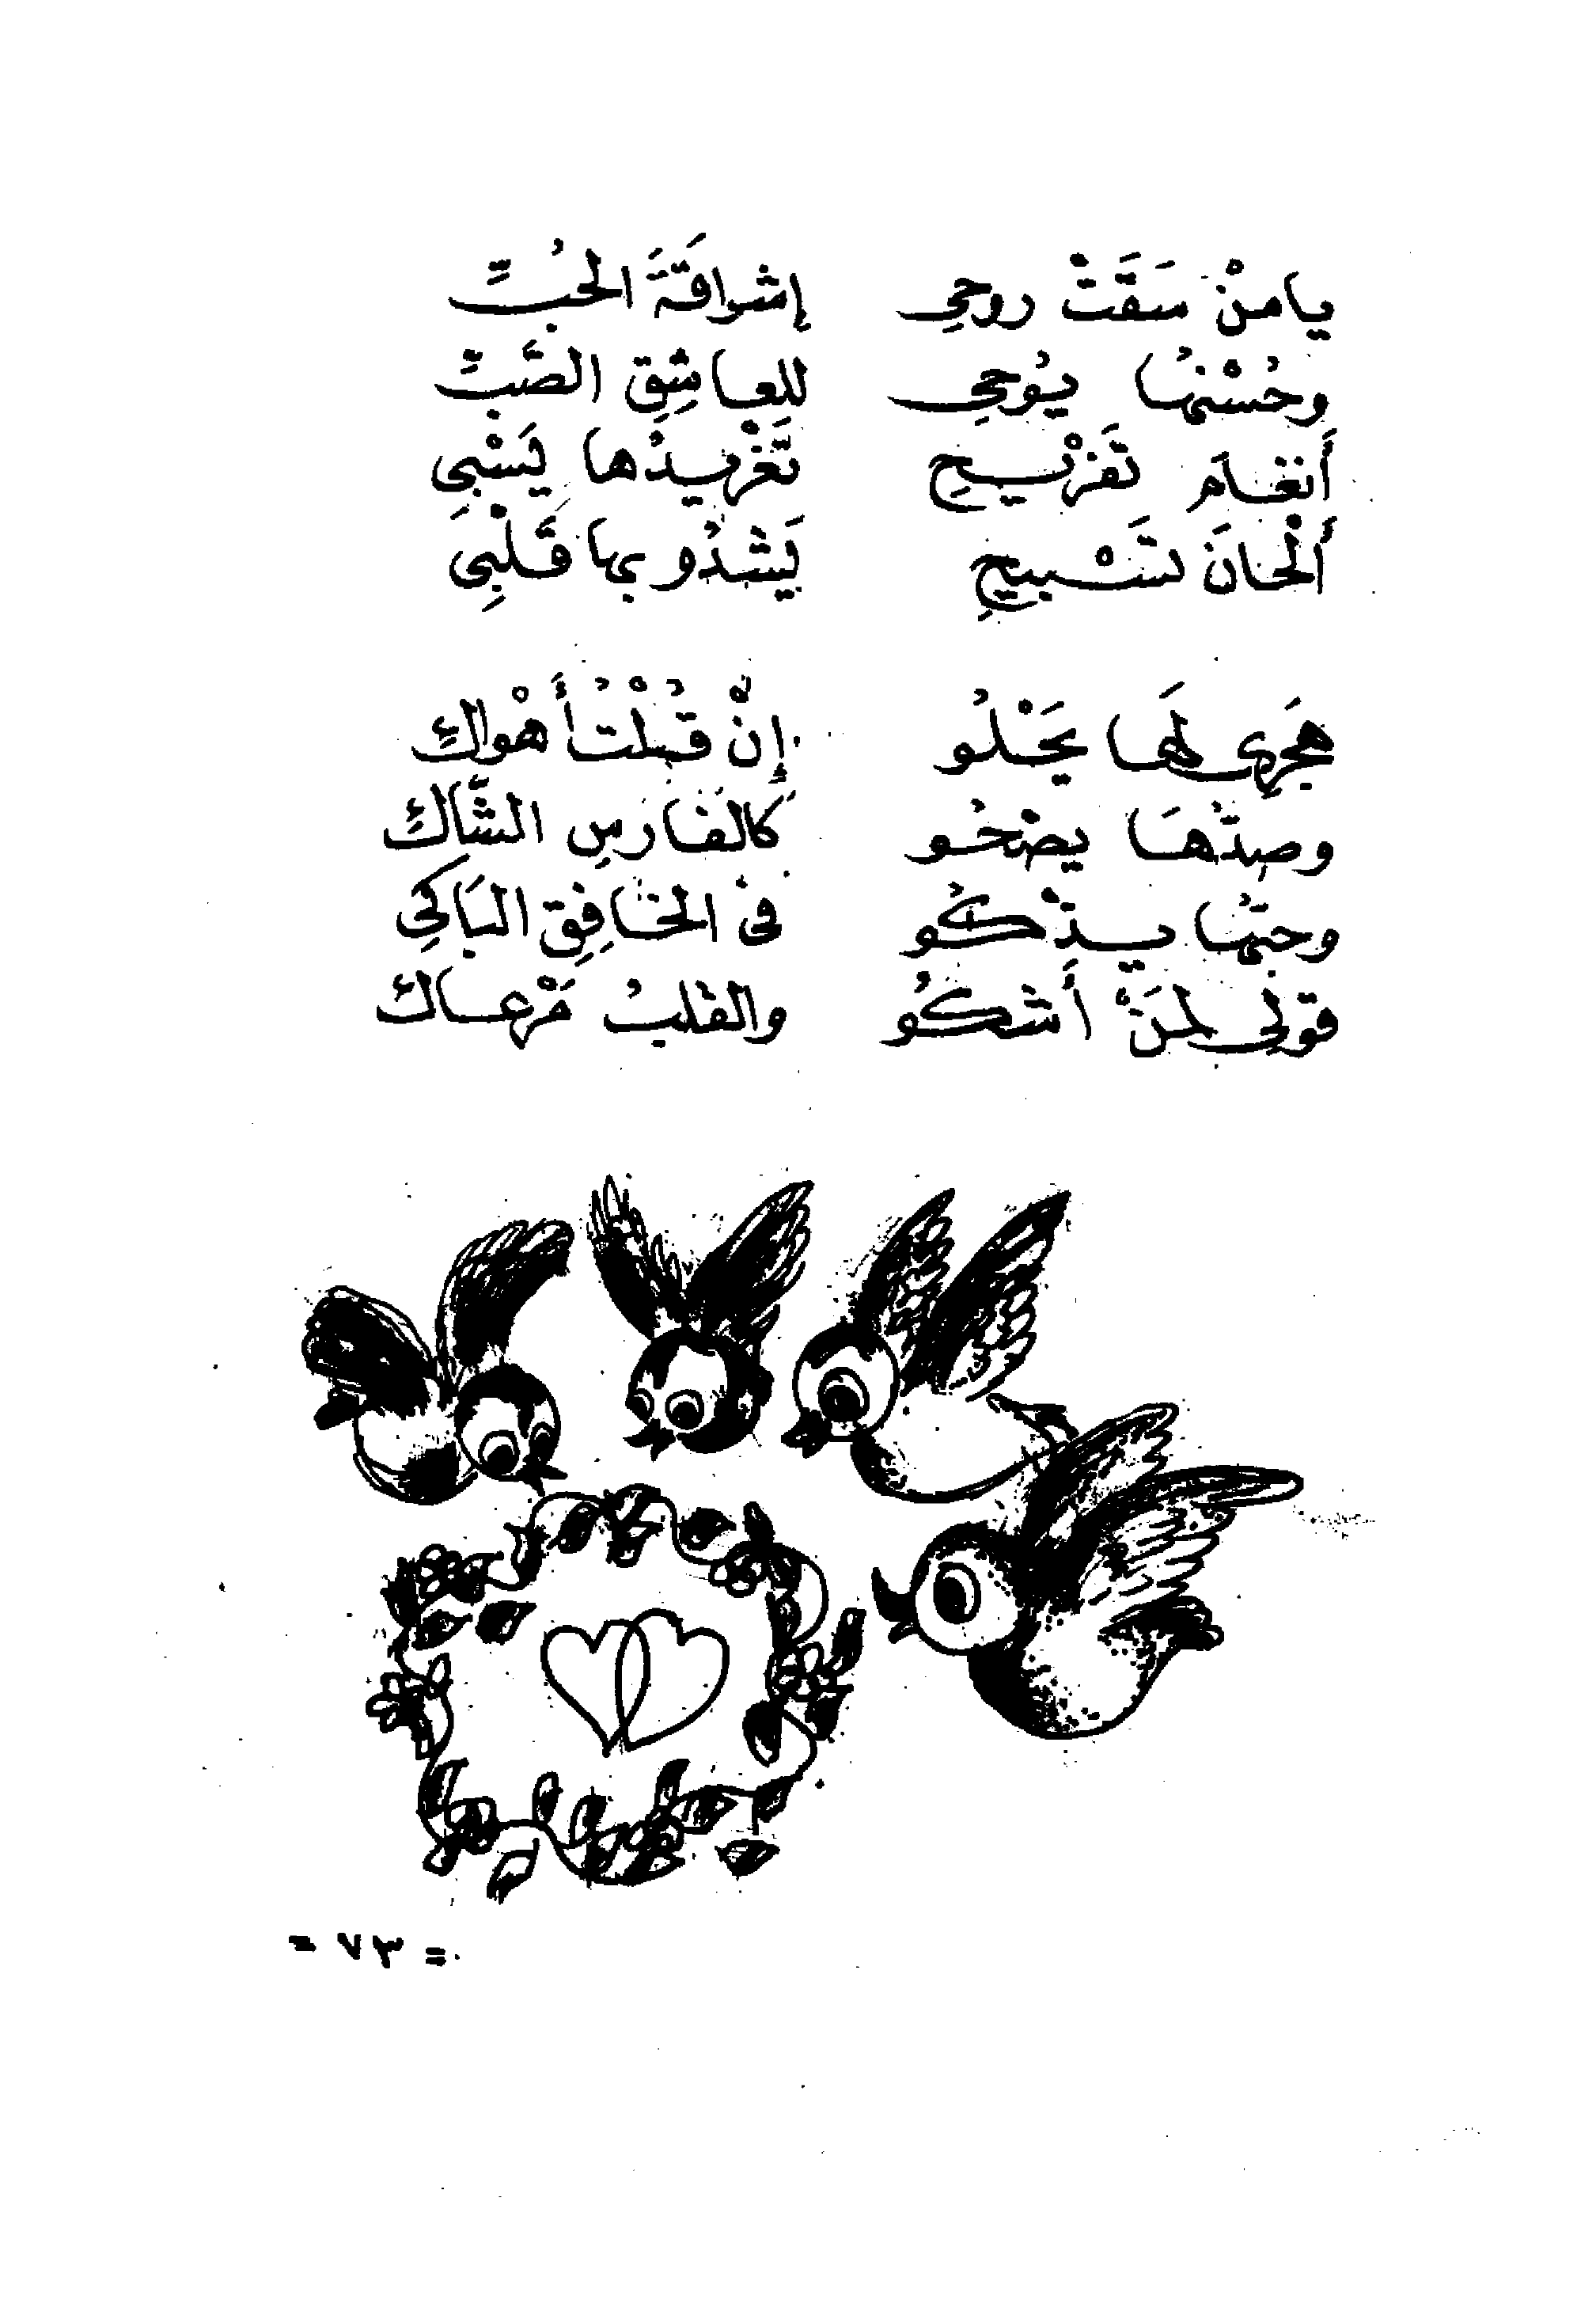 يا منْ سَقَتْ روحي إشراقَةَ الحُبِّ
وحُسْنُها يُوحي للعاشِقِ الصَّبِّ
أَنغامَ تَفْرِيحِ تَغْرِيدُها يَسْبِي
أَلْحانَ تَسْبيحِ يَشْدُو بها قَلْبِي
هَجْرِي لَها يَحْلُو إنْ قُلْتُ أَهْواكِ
وصدُّهَا يضْحُو كالفارسِ الشَّاكِ
وحبُّها يذْكُو في الخافِقِ البَاكِي
قولِي لمَنْ أَشكُو والقلبُ مَرْعاك
= ٧٣ =